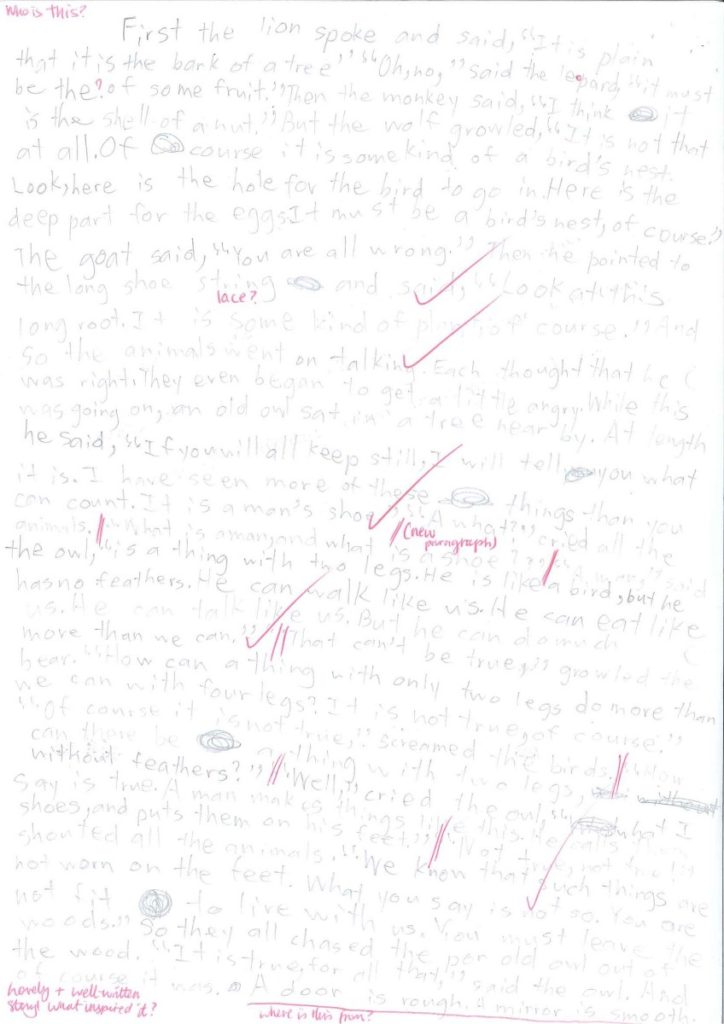 Who is this?
First the lion spoke and said, "It is plain
that it is the bark of a tree" "Oh, no," said the lepard, "it must
be the? of some fruit." Then the monkey said, "I think it
is the shell of a nut." But the wolf growled, "It is not that
at all. Of course it is some kind of a bird's nest.
Look, here is the hole for the bird to go in. Here is the
deep part for the eggs. It must be a bird's nest, of course."
The goat said, "You are all wrong." Then he pointed to
the long shoe string and said, "Look at this
lace?
long root. It is some kind of plant, of course." And
so the animals went on talking. Each thought that he
was right. They even began to get a little angry. While this
was going on, an old owl sat in a tree near by. At length
he said, "If you will all keep still, I will tell you what
it is. I have seen more of these things than you
can count. It is a man's shoe." "A what?" cried all the
animals. "What is a man, and what is a shoe?" "A man," said
(new paragraph)
the owl, "is a thing with two legs. He is like a bird, but he
has no feathers. He can walk like us. He can eat like
us. He can talk like us. But he can do much
more than we can." "That can't be true," growled the
bear. "How can a thing with only two legs do more than
we can with four legs? It is not true, of course."
"Of course it is not true," screamed the birds. "How
can there be a thing with two legs,
without feathers?" "Well," cried the owl, "what I
say is true. A man makes things like this. He calls them
shoes, and puts them on his feet." "Not true, not true!"
shouted all the animals. "We know that such things are
not worn on the feet. What you say is not so. You are
not fit to live with us. You must leave the
woods." So they all chased the por old owl out of
the wood. "It is true, for all that," said the owl. And
of course it was. A door is rough. A mirror is smooth.
lovely + well-written
story! what inspired it?
where is this from?